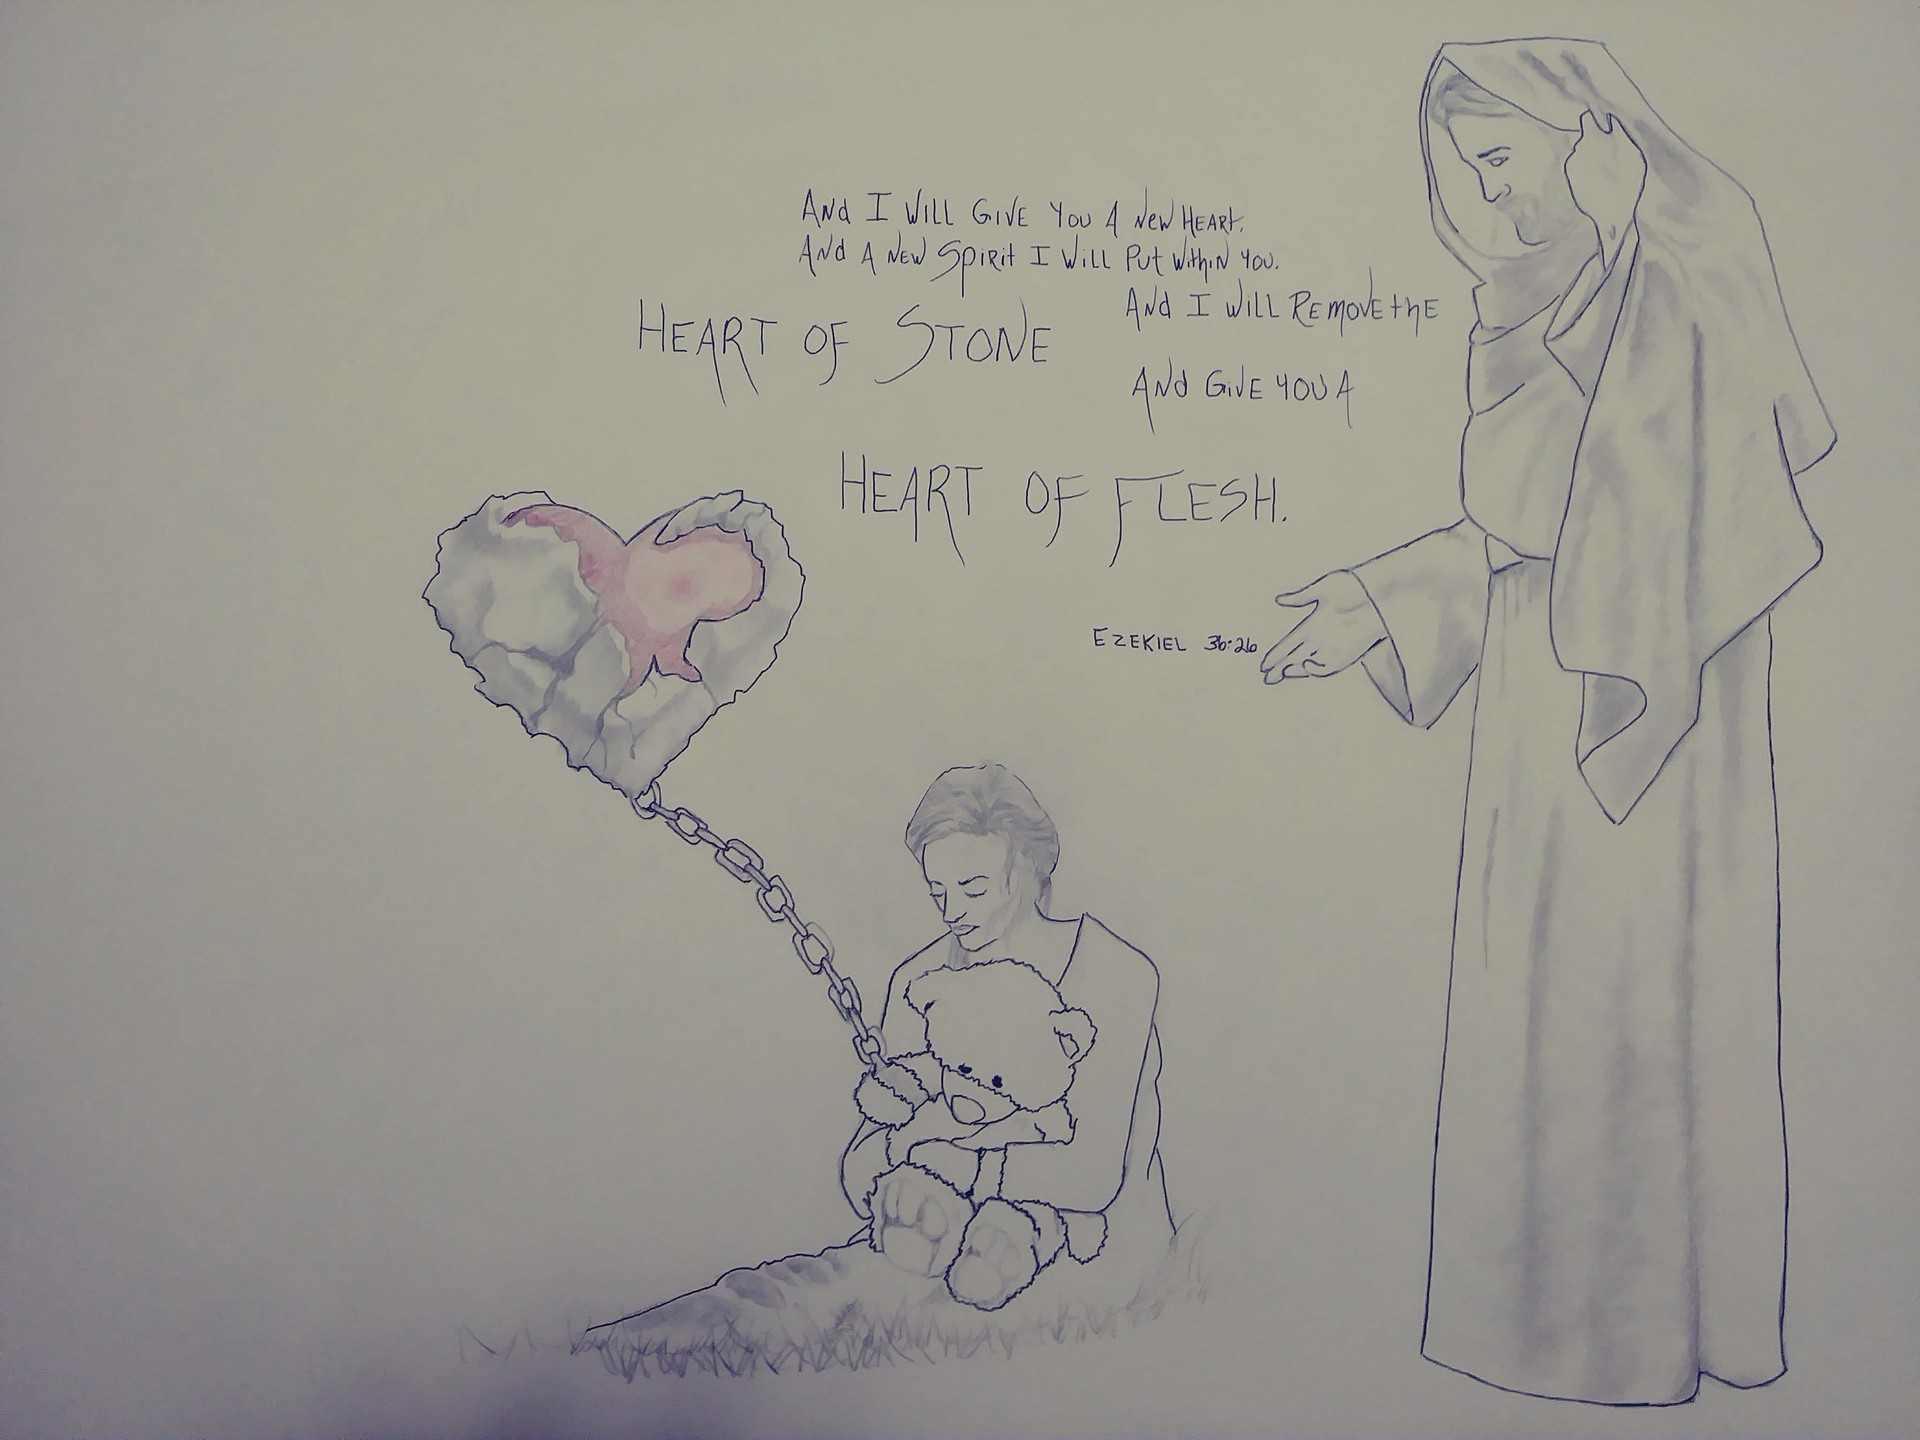 And I Will Give You A New Heart.
And A New Spirit I Will Put Within You.
And I Will Remove the
Heart of Stone
And Give You A
Heart of Flesh.
Ezekiel 36:26